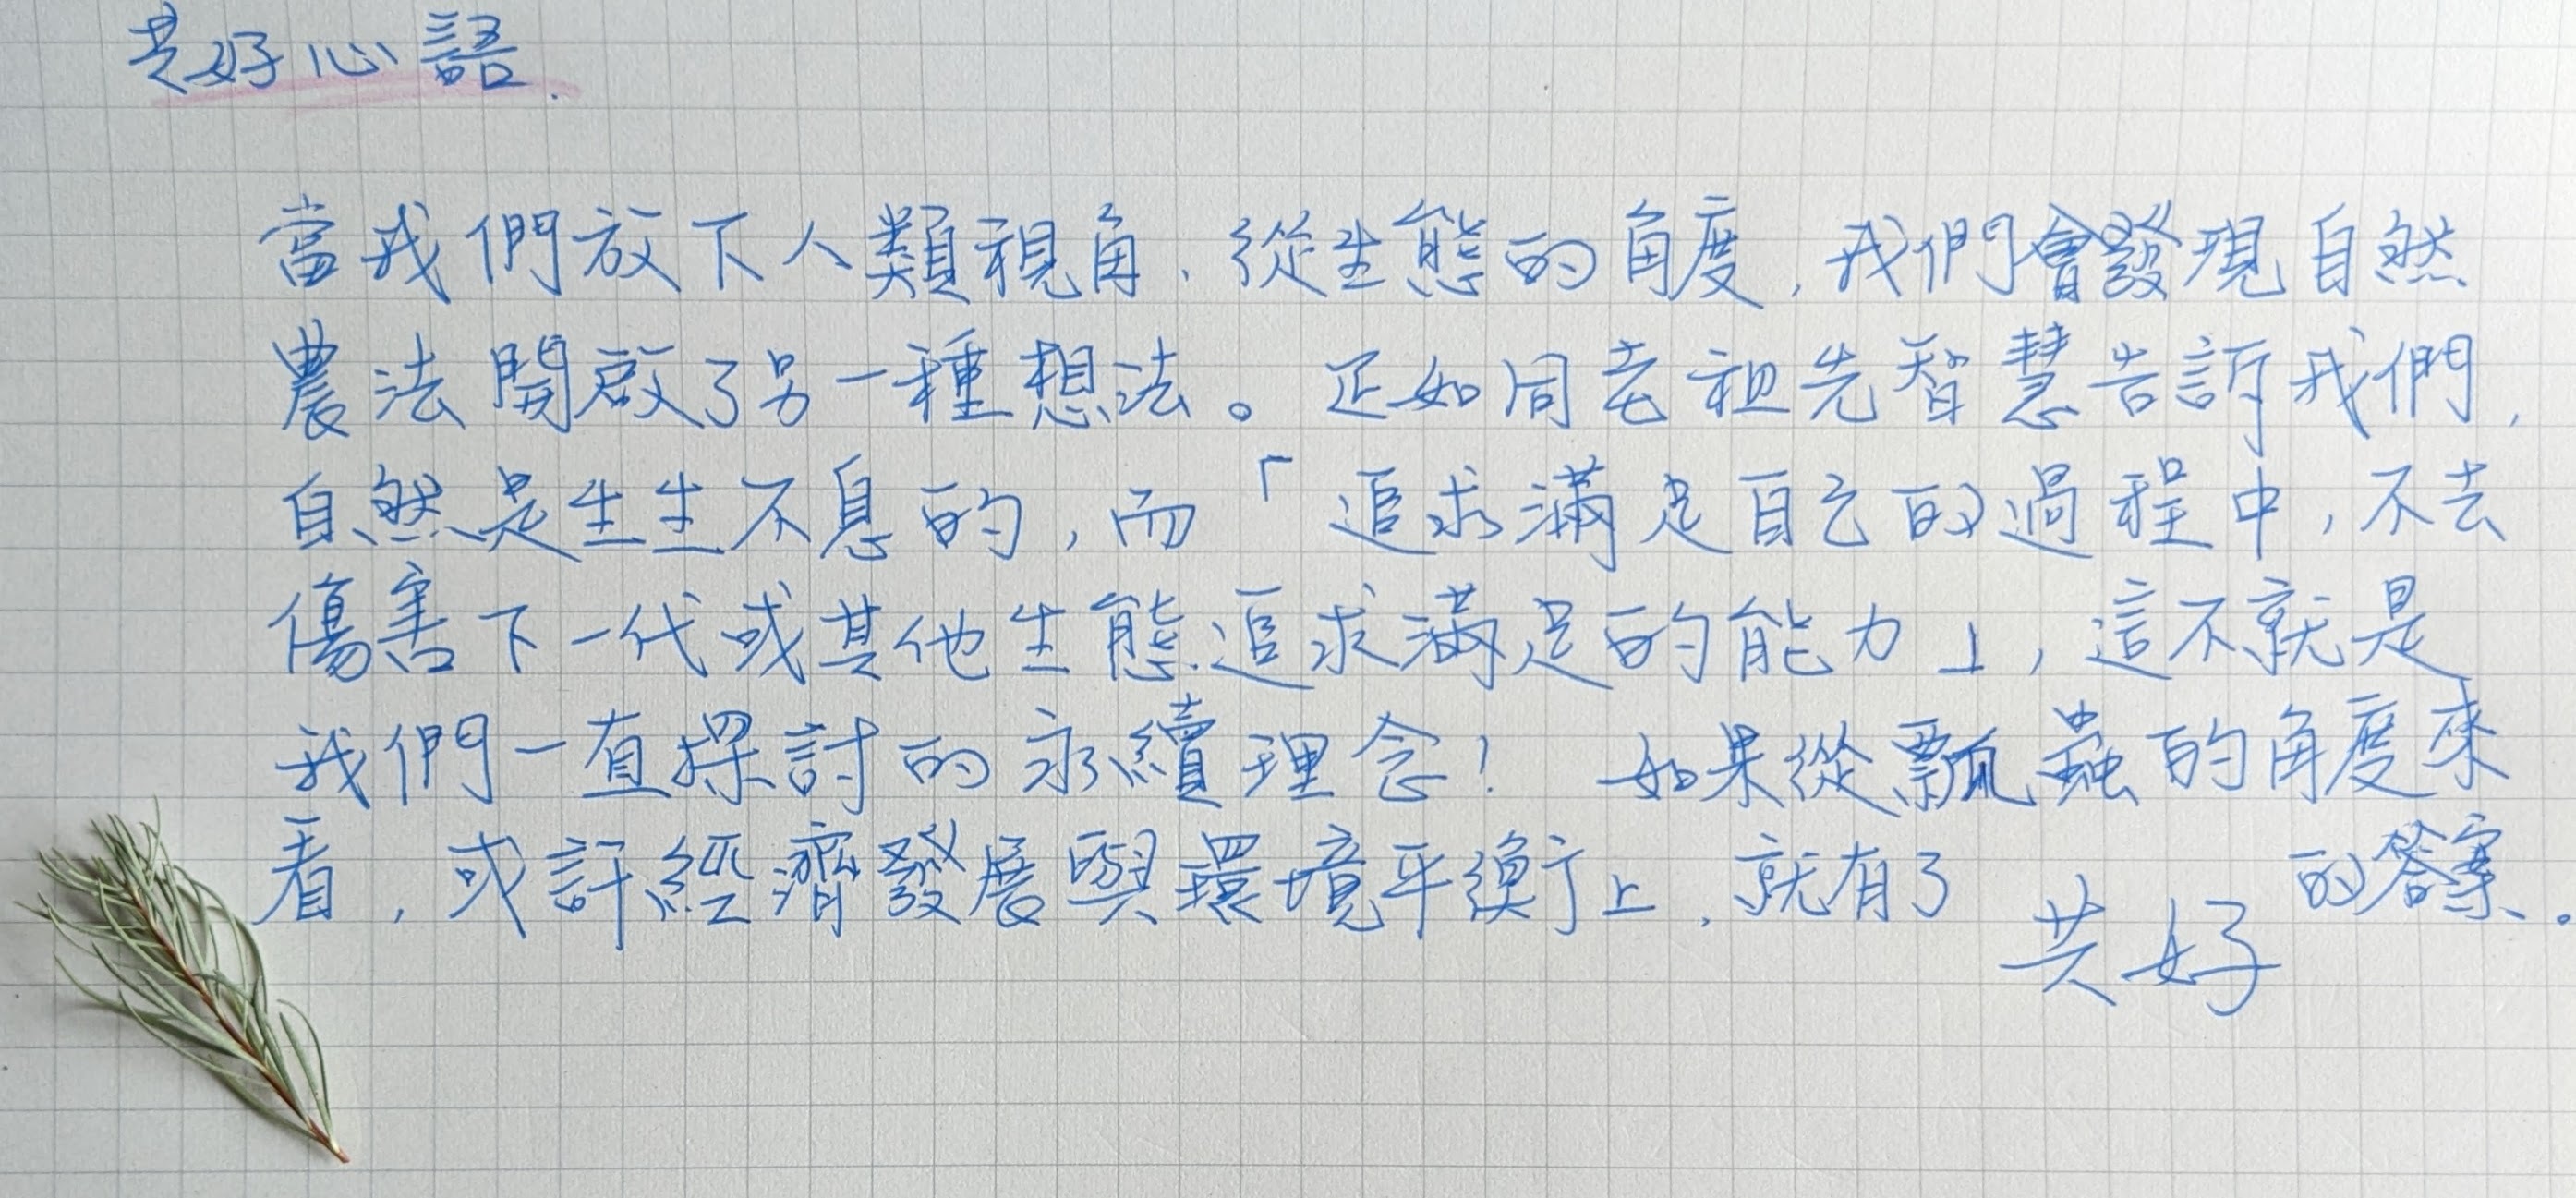 共好心語.
當我們放下人類視角，從生態的角度，我們會發現自然
農法開啟了另一種想法。正如同老祖先智慧告訴我們，
自然是生生不息的，而「追求滿足自己的過程中，不去
傷害下一代或其他生態追求滿足的能力」，這不就是
我們一直探討的永續理念！如果從瓢蟲的角度來
看，或許經濟發展與環境平衡上，就有了 共好 的答案。